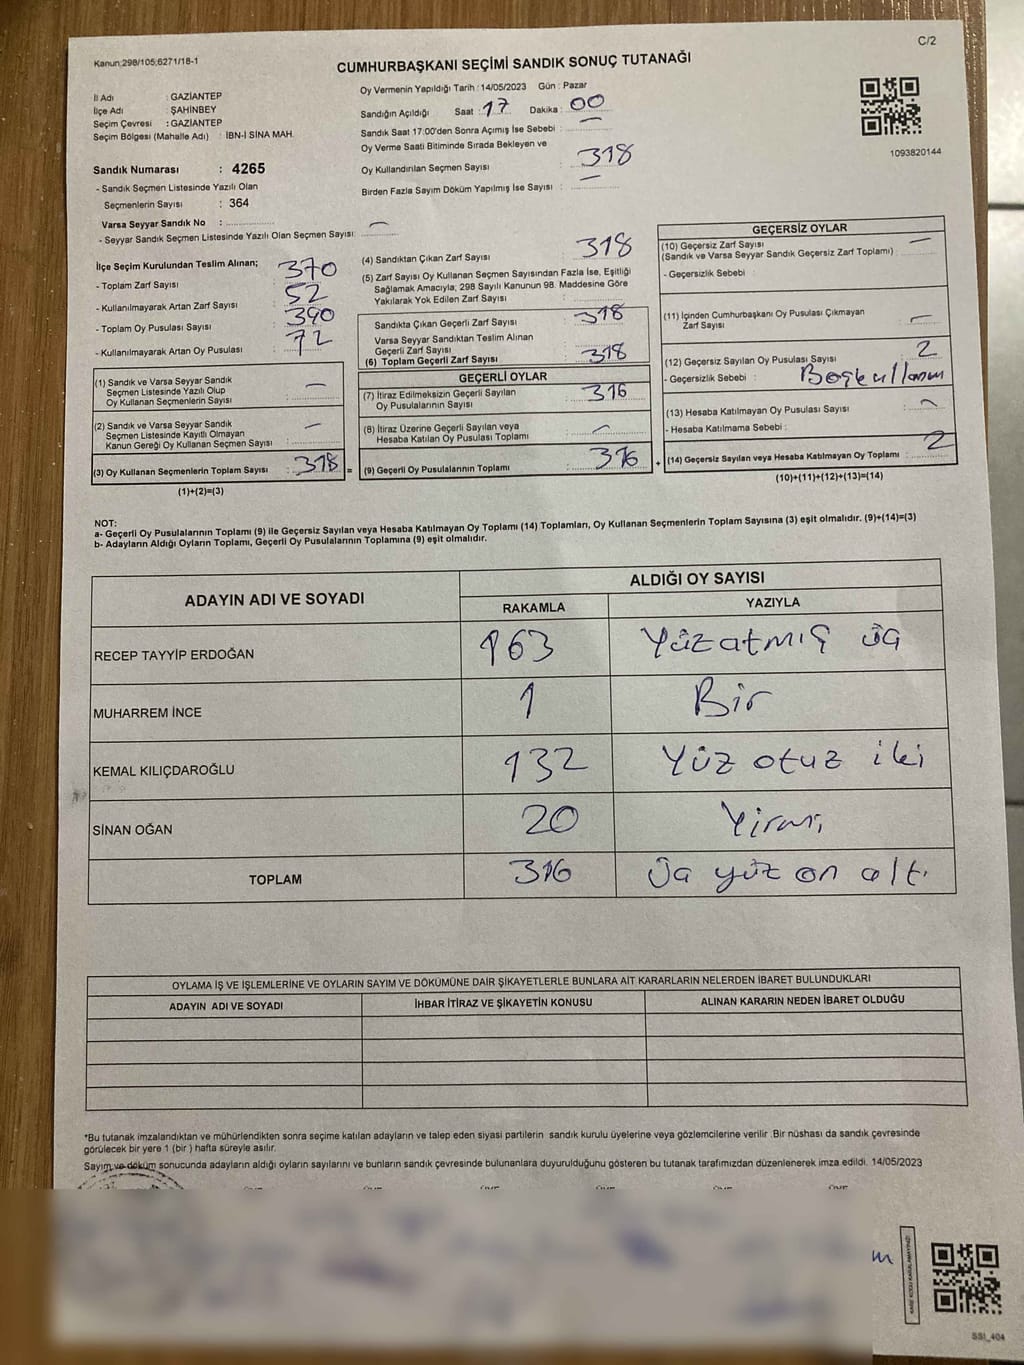 C/2
Kanun:298/105;6271/18-1
CUMHURBAŞKANI SEÇİMİ SANDIK SONUÇ TUTANAĞI
İl Adı : GAZİANTEP
İlçe Adı : ŞAHİNBEY
Seçim Çevresi : GAZİANTEP
Seçim Bölgesi (Mahalle Adı) : İBN-İ SİNA MAH.
Sandık Numarası : 4265
- Sandık Seçmen Listesinde Yazılı Olan
Seçmenlerin Sayısı : 364
Varsa Seyyar Sandık No :
- Seyyar Sandık Seçmen Listesinde Yazılı Olan Seçmen Sayısı: —
Oy Vermenin Yapıldığı Tarih : 14/05/2023 Gün : Pazar
Sandığın Açıldığı Saat : 17 Dakika : 00
Sandık Saat 17:00'den Sonra Açımış İse Sebebi : —
Oy Verme Saati Bitiminde Sırada Bekleyen ve
Oy Kullandırılan Seçmen Sayısı : 318
Birden Fazla Sayım Döküm Yapılmış İse Sayısı : —
1093820144
İlçe Seçim Kurulundan Teslim Alınan;
- Toplam Zarf Sayısı : 370
- Kullanılmayarak Artan Zarf Sayısı : 52
- Toplam Oy Pusulası Sayısı : 390
- Kullanılmayarak Artan Oy Pusulası : 72
(1) Sandık ve Varsa Seyyar Sandık
Seçmen Listesinde Yazılı Olup
Oy Kullanan Seçmenlerin Sayısı : —
(2) Sandık ve Varsa Seyyar Sandık
Seçmen Listesinde Kayıtlı Olmayan
Kanun Gereği Oy Kullanan Seçmen Sayısı : —
(3) Oy Kullanan Seçmenlerin Toplam Sayısı : 318 =
(1)+(2)=(3)
(4) Sandıktan Çıkan Zarf Sayısı : 318
(5) Zarf Sayısı Oy Kullanan Seçmen Sayısından Fazla İse, Eşitliği
Sağlamak Amacıyla; 298 Sayılı Kanunun 98. Maddesine Göre
Yakılarak Yok Edilen Zarf Sayısı :
Sandıkta Çıkan Geçerli Zarf Sayısı : 318
Varsa Seyyar Sandıktan Teslim Alınan
Geçerli Zarf Sayısı :
(6) Toplam Geçerli Zarf Sayısı : 318
GEÇERLİ OYLAR
(7) İtiraz Edilmeksizin Geçerli Sayılan
Oy Pusulalarının Sayısı : 316
(8) İtiraz Üzerine Geçerli Sayılan veya
Hesaba Katılan Oy Pusulası Toplamı : —
(9) Geçerli Oy Pusulalarının Toplamı : 316 +
GEÇERSİZ OYLAR
(10) Geçersiz Zarf Sayısı
(Sandık ve Varsa Seyyar Sandık Geçersiz Zarf Toplamı) : —
- Geçersizlik Sebebi :
(11) İçinden Cumhurbaşkanı Oy Pusulası Çıkmayan
Zarf Sayısı : —
(12) Geçersiz Sayılan Oy Pusulası Sayısı : 2
- Geçersizlik Sebebi : Boş kullanım
(13) Hesaba Katılmayan Oy Pusulası Sayısı : —
- Hesaba Katılmama Sebebi :
(14) Geçersiz Sayılan veya Hesaba Katılmayan Oy Toplamı : 2
(10)+(11)+(12)+(13)=(14)
NOT:
a- Geçerli Oy Pusulalarının Toplamı (9) ile Geçersiz Sayılan veya Hesaba Katılmayan Oy Toplamı (14) Toplamları, Oy Kullanan Seçmenlerin Toplam Sayısına (3) eşit olmalıdır. (9)+(14)=(3)
b- Adayların Aldığı Oyların Toplamı, Geçerli Oy Pusulalarının Toplamına (9) eşit olmalıdır.
ADAYIN ADI VE SOYADI ALDIĞI OY SAYISI
RAKAMLA YAZIYLA
RECEP TAYYİP ERDOĞAN 163 Yüzatmış üç
MUHARREM İNCE 1 Bir
KEMAL KILIÇDAROĞLU 132 Yüz otuz iki
SİNAN OĞAN 20 Yirmi
TOPLAM 316 Üç yüz on altı
OYLAMA İŞ VE İŞLEMLERİNE VE OYLARIN SAYIM VE DÖKÜMÜNE DAİR ŞİKAYETLERLE BUNLARA AİT KARARLARIN NELERDEN İBARET BULUNDUKLARI
ADAYIN ADI VE SOYADI İHBAR İTİRAZ VE ŞİKAYETİN KONUSU ALINAN KARARIN NEDEN İBARET OLDUĞU
*Bu tutanak imzalandıktan ve mühürlendikten sonra seçime katılan adayların ve talep eden siyasi partilerin sandık kurulu üyelerine veya gözlemcilerine verilir .Bir nüshası da sandık çevresinde
görülecek bir yere 1 (bir ) hafta süreyle asılır.
Sayım ve döküm sonucunda adayların aldığı oyların sayılarını ve bunların sandık çevresinde bulunanlara duyurulduğunu gösteren bu tutanak tarafımızdan düzenlenerek imza edildi. 14/05/2023
SSI_404